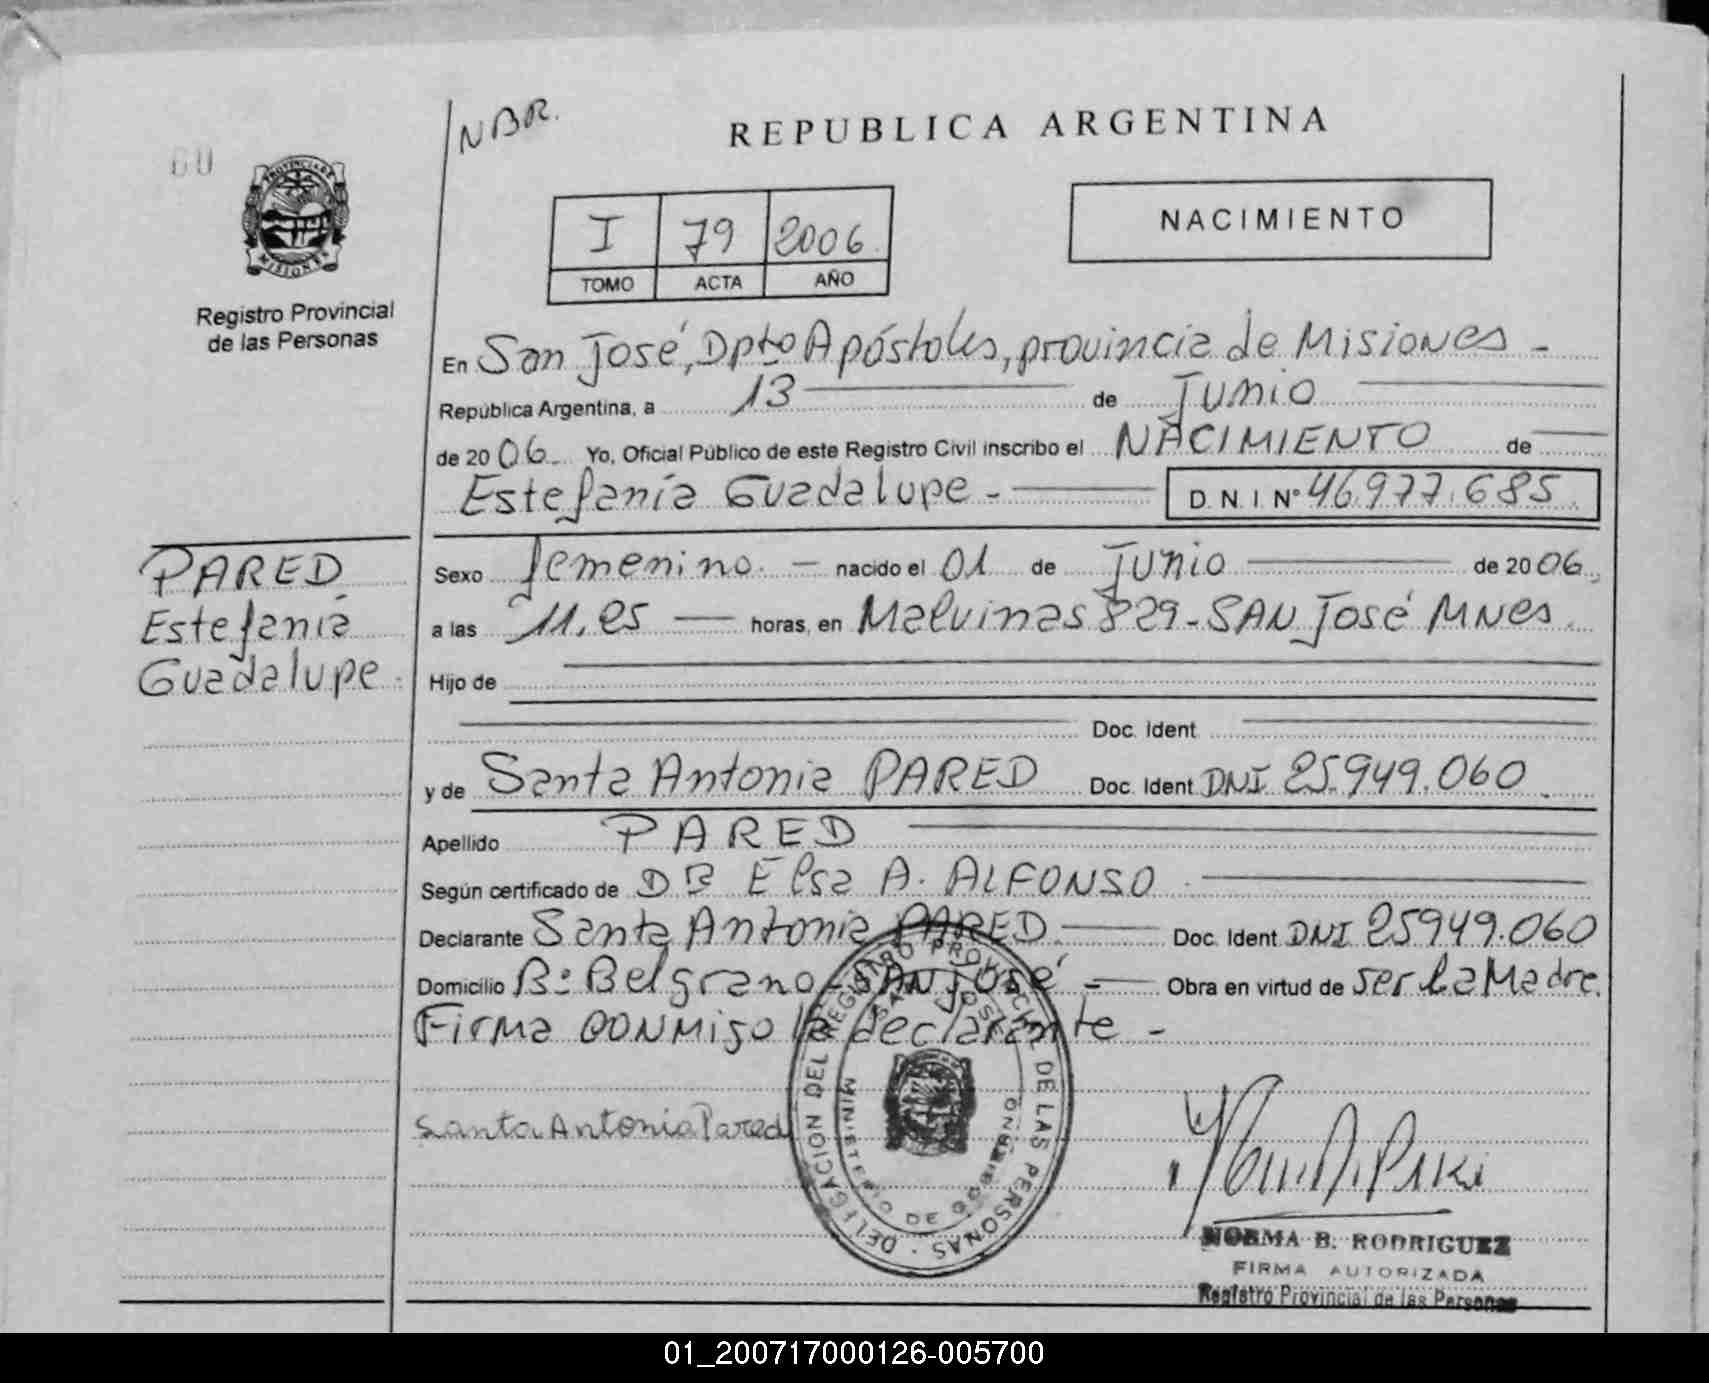 NBR.
REPUBLICA ARGENTINA
60
PROVINCIA DE
MISIONES
Registro Provincial
de las Personas
I 79 2006
TOMO ACTA AÑO
NACIMIENTO
En San José, Dpto Apóstoles, provincia de Misiones -
República Argentina, a 13 de Junio
de 2006 Yo, Oficial Público de este Registro Civil inscribo el NACIMIENTO de
Estefanía Guadalupe - D. N. I. N° 46.977.685
PARED
Estefanía
Guadalupe
Sexo femenino. - nacido el 01 de Junio de 2006
a las 11,25 horas, en Malvinas 829 - SAN José MNes.
Hijo de
Doc. Ident
y de Santa Antonia PARED Doc. Ident DNI 25.949.060
Apellido PARED
Según certificado de DR Elsa A. ALFONSO
Declarante Santa Antonia PARED Doc. Ident DNI 25949.060
Domicilio B° Belgrano - SAN José - Obra en virtud de ser la Madre.
Firma conmigo la declarante -
Santa Antonia Pared
DELEGACION DEL REGISTRO PROVINCIAL DE LAS PERSONAS
SAN JOSE
MINISTERIO DE GOBIERNO
NORMA B. RODRIGUEZ
FIRMA AUTORIZADA
Registro Provincial de las Personas
01_200717000126-005700